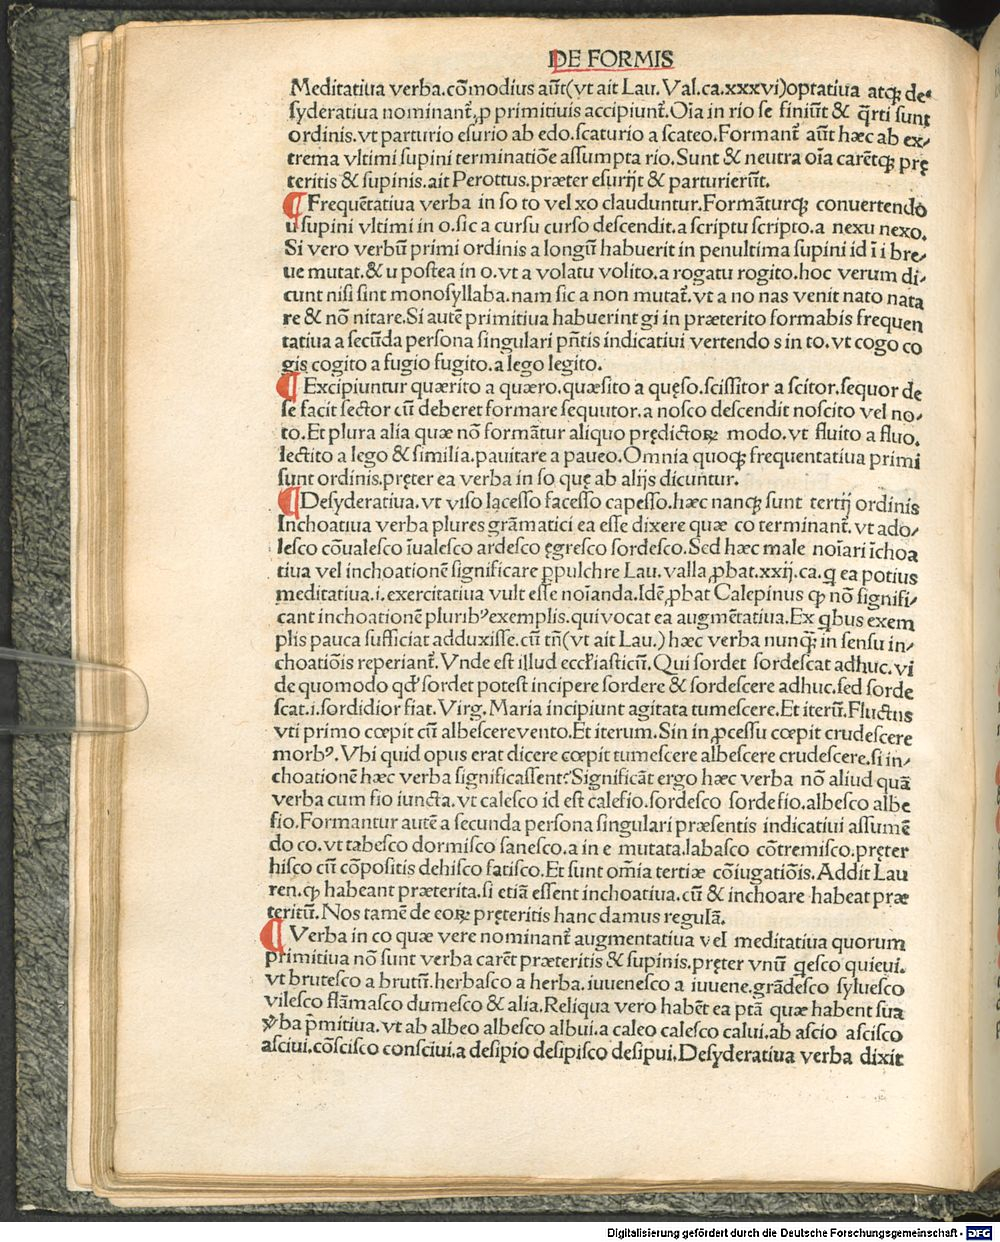 DE FORMIS
Meditatiua verba.cōmodius aūt(vt ait Lau. Val.ca.xxxvi)optatiua atq; de⸗
syderatiua nominant̄,ꝓ primitiuis accipiunt̄.Oīa in rio se finiūt & q̄rti sunt
ordinis.vt parturio esurio ab edo.scaturio a scateo.Formant̄ aūt hæc ab ex⸗
trema vltimi supini terminatiōe assumpta rio.Sunt & neutra oīa carētq; prę
teritis & supinis.ait Perottus.præter esurijt & parturierūt.
¶ Frequētatiua verba in so to vel xo clauduntur.Formāturq; conuertendo
u supini vltimi in o.sic a cursu curso descendit.a scriptu scripto.a nexu nexo.
Si vero verbū primi ordinis a longū habuerit in penultima supini id ī i bre⸗
ue mutat.& u postea in o.vt a volatu volito.a rogatu rogito.hoc verum di⸗
cunt nisi sint monosyllaba.nam sic a non mutat̄.vt a no nas venit nato nata
re & nō nitare.Si autē primitiua habuerint gi in præterito formabis frequen
tatiua a secūda persona singulari pn̄tis indicatiui vertendo s in to.vt cogo co
gis cogito a fugio fugito.a lego legito.
¶ Excipiuntur quærito a quæro.quæsito a quęso.scissitor a scitor.sequor de
se facit sector cū deberet formare sequutor.a nosco descendit noscito vel no⸗
to.Et plura alia quæ nō formātur aliquo prędictoꝝ modo.vt fluito a fluo.
lectito a lego & similia.pauitare a paueo.Omnia quoq; frequentatiua primi
sunt ordinis.pręter ea verba in so quę ab alijs dicuntur.
¶ Desyderatiua.vt viso lacesso facesso capesso.hæc nanq; sunt tertij ordinis
Inchoatiua verba plures grāmatici ea esse dixere quæ co terminant̄.vt ado⸗
lesco cōualesco īualesco ardesco ęgresco sordesco.Sed hæc male noīari īchoa
tiua vel inchoationē significare ꝑpulchre Lau.valla ꝓbat.xxij.ca.q ea potius
meditatiua.i.exercitatiua vult esse noīanda.Idē ꝓbat Calepinus qꝫ nō signifi⸗
cant inchoationē pluribꝰ exemplis.qui vocat ea augmētatiua.Ex qbus exem
plis pauca sufficiat adduxisse.cū tn̄(vt ait Lau.) hæc verba nunq̄ in sensu in⸗
choatiōis reperiant̄.Vnde est illud eccl'iasticū.Qui sordet sordescat adhuc.vi
de quomodo qd' sordet potest incipere sordere & sordescere adhuc.sed sorde
scat.i.sordidior fiat.Virg.Maria incipiunt agitata tumescere.Et iterū.Fluctus
vti primo cœpit cū albescere vento.Et iterum.Sin in ꝓcessu cœpit crudescere
morbꝰ.Vbi quid opus erat dicere cœpit tumescere albescere crudescere.si in⸗
choationē hæc verba significassent?Significāt ergo hæc verba nō aliud quā
verba cum fio iuncta.vt calesco id est calefio.sordesco sordefio.albesco albe
fio.Formantur autē a secunda persona singulari præsentis indicatiui assumē
do co.vt tabesco dormisco sanesco.a in e mutata.labasco cōtremisco.pręter
hisco cū cōpositis dehisco fatisco.Et sunt om̄ia tertiæ cōiugatiōis.Addit Lau
ren.qꝫ habeant præterita.si etiā essent inchoatiua.cū & inchoare habeat præ
teritū.Nos tamē de eoꝝ pręteritis hanc damus regulā.
¶ Verba in co quæ vere nominant̄ augmentatiua vel meditatiua quorum
primitiua nō sunt verba carēt præteritis & supinis.pręter vnū qesco quieui.
vt brutesco a brutū.herbasco a herba.iuuenesco a iuuene.grādesco syluesco
vilesco flāmasco dumesco & alia.Reliqua vero habēt ea ptā quæ habent sua
v̄ba p̄mitiua.vt ab albeo albesco albui.a caleo calesco calui.ab ascio ascisco
asciui.cōscisco consciui.a desipio desipisco desipui.Desyderatiua verba dixit
Digitalisierung gefördert durch die Deutsche Forschungsgemeinschaft - DFG